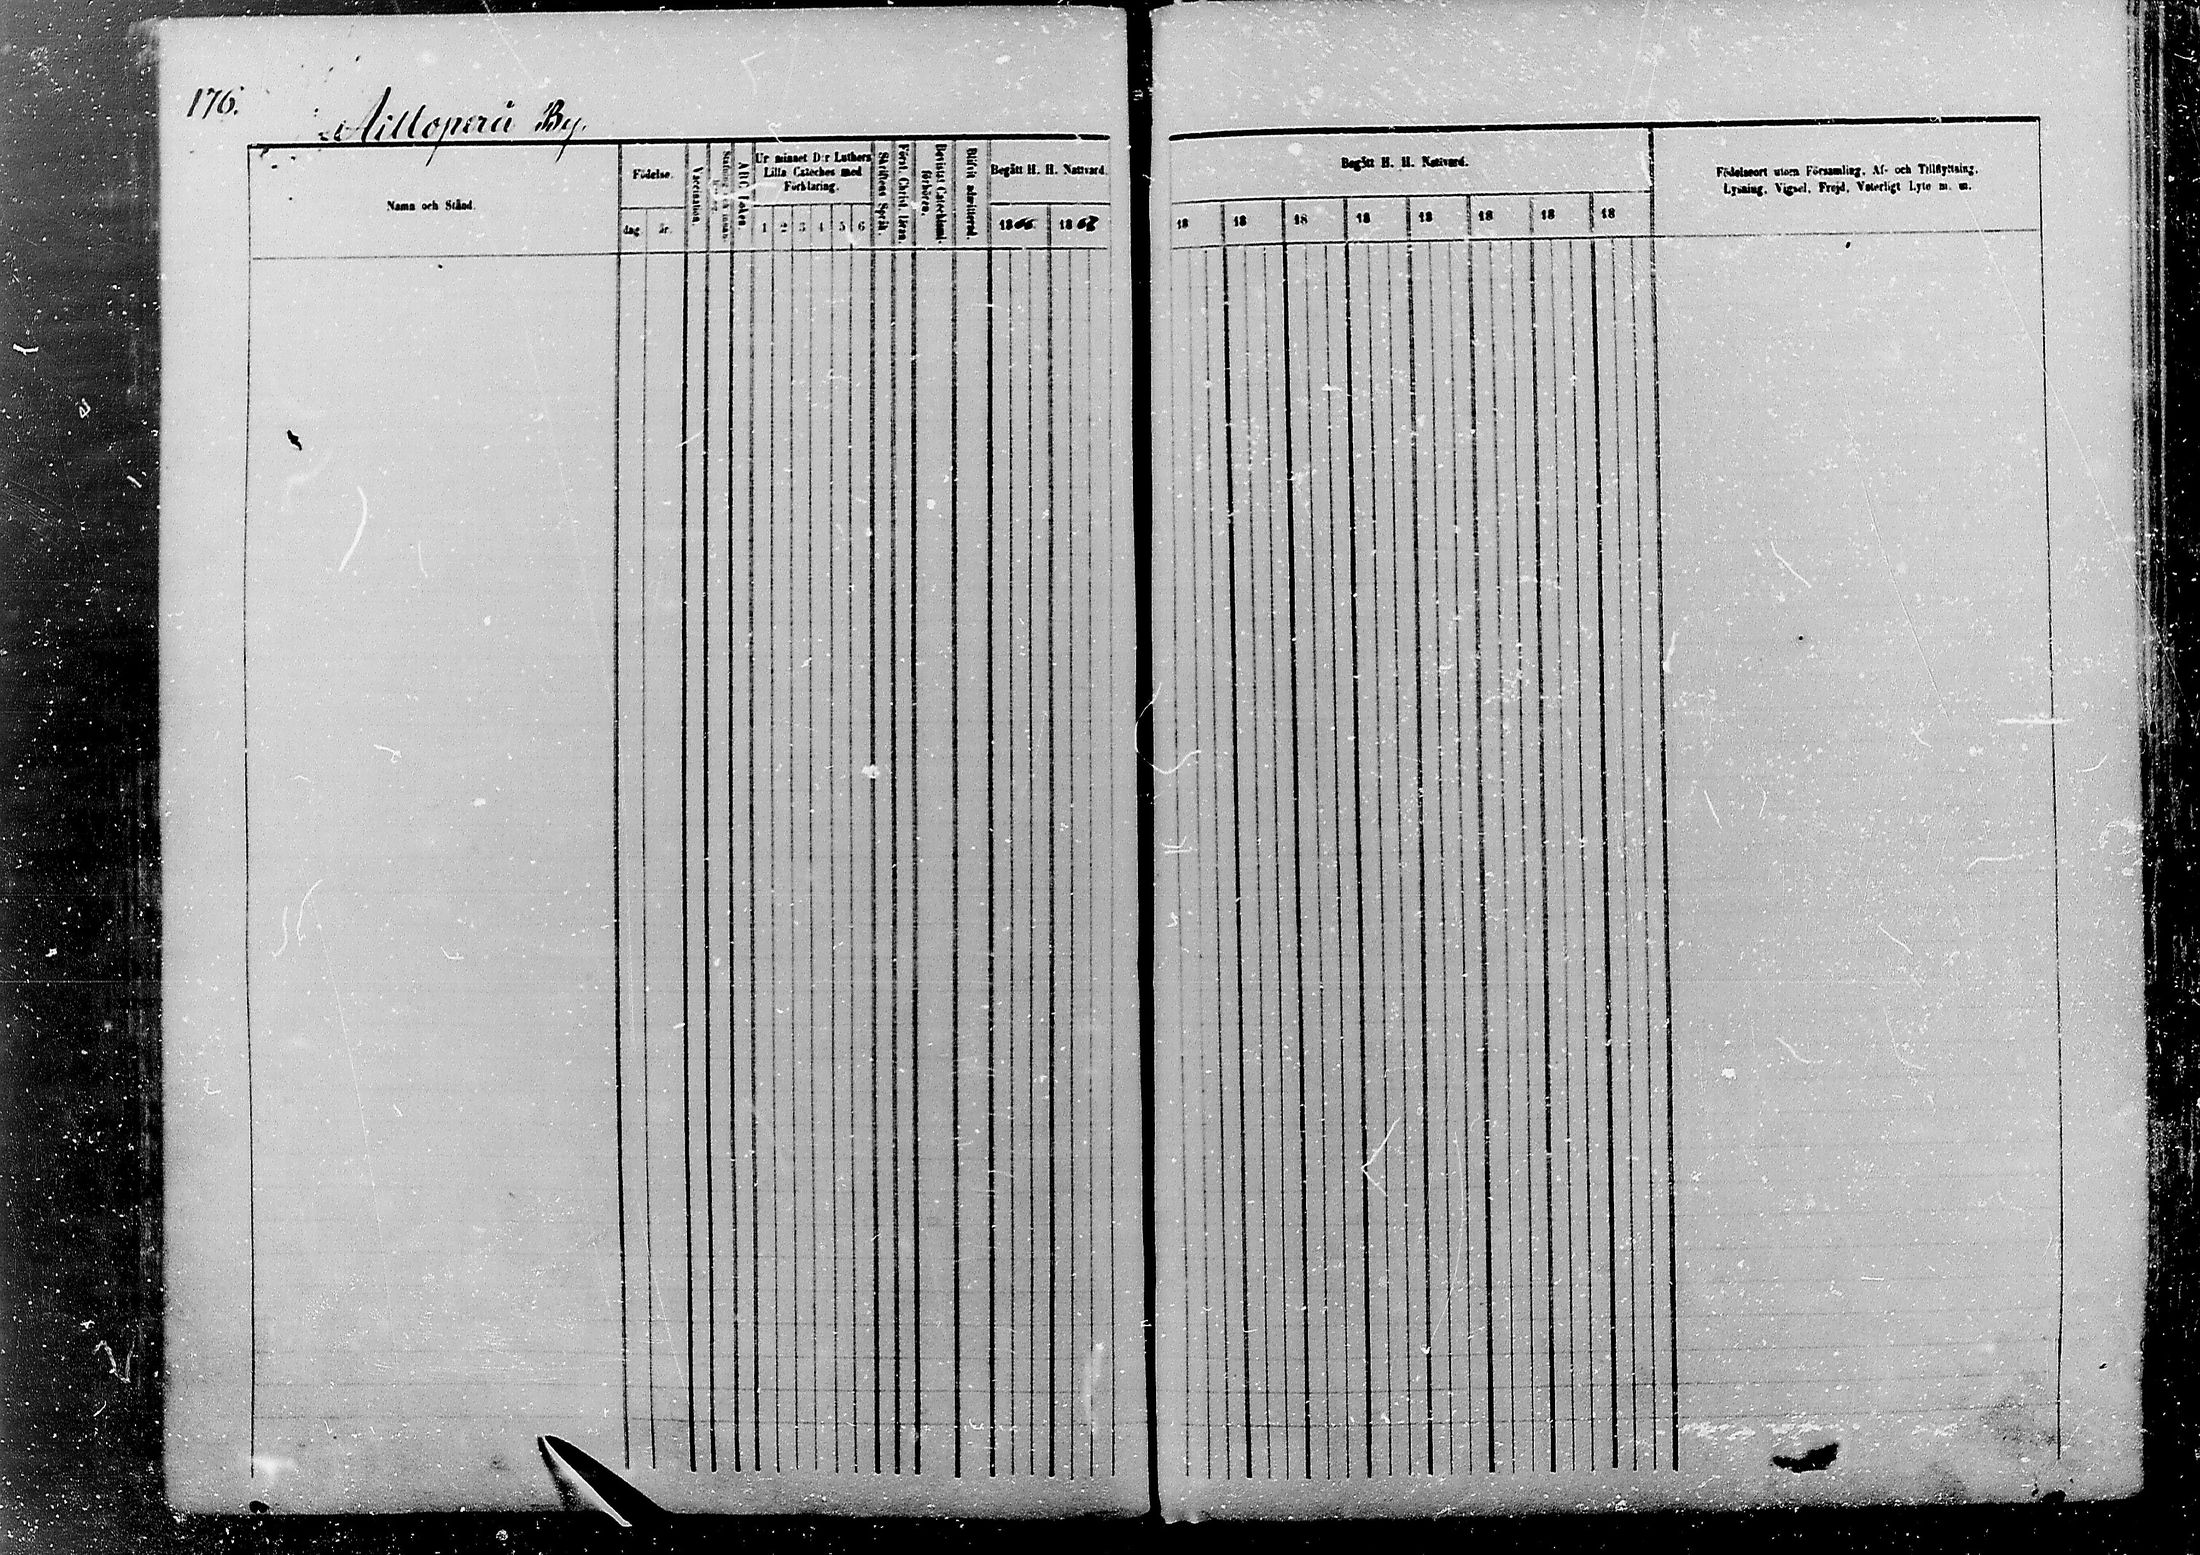 176.
Aittoperä By.
Namn och Stånd.
Födelse.
dag.
år.
Vaccination.
ABC boken.
Ur minnet D:r Luthers
Lilla Cateches med
Förklaring.
1 2 3 4 5 6
Skriftens Språk.
Först. Christ. läran.
Bevistat Catechismi-
förhören.
Blifvit admitterad.
Begått H. H. Nattvard.
1866 1868
Begått H. H. Nattvard.
18 18 18 18 18 18 18 18
Födelseort utom Församling, Af- och Tillflyttning,
Lysning, Vigsel, Frejd, Veterligt Lyte m. m.